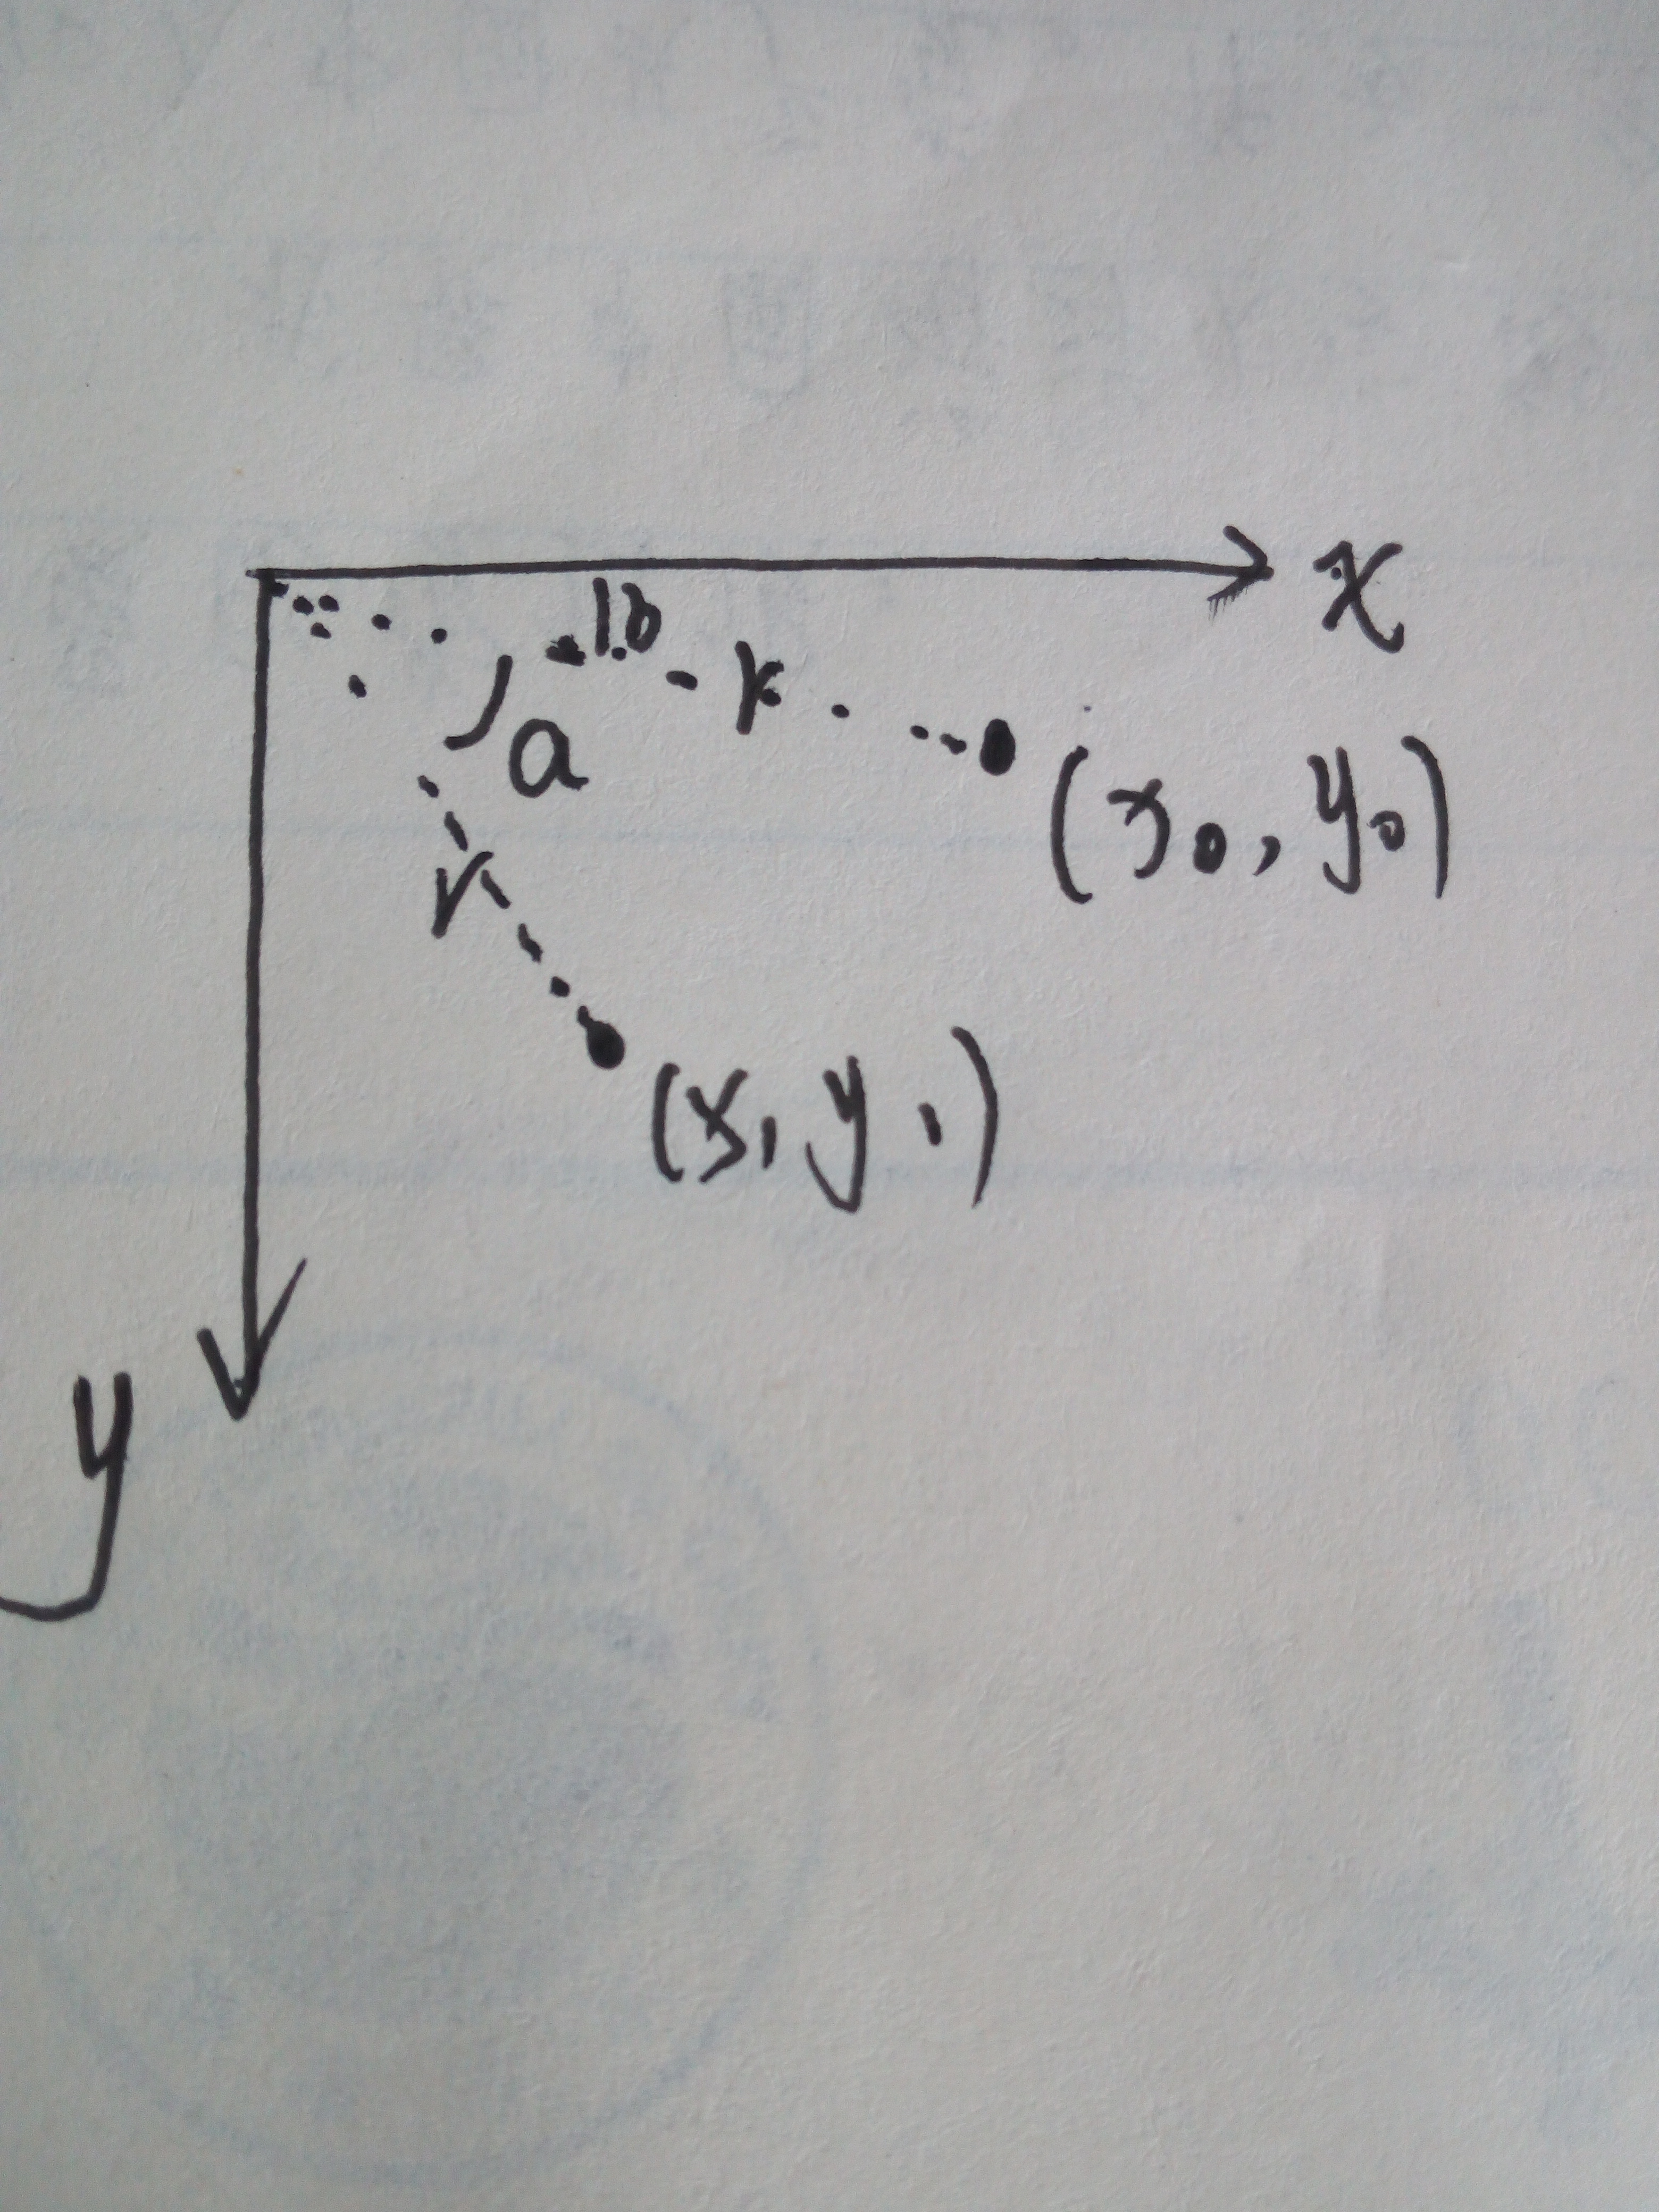 x
b
r
a
(x₀, y₀)
r
(x, y,)
y